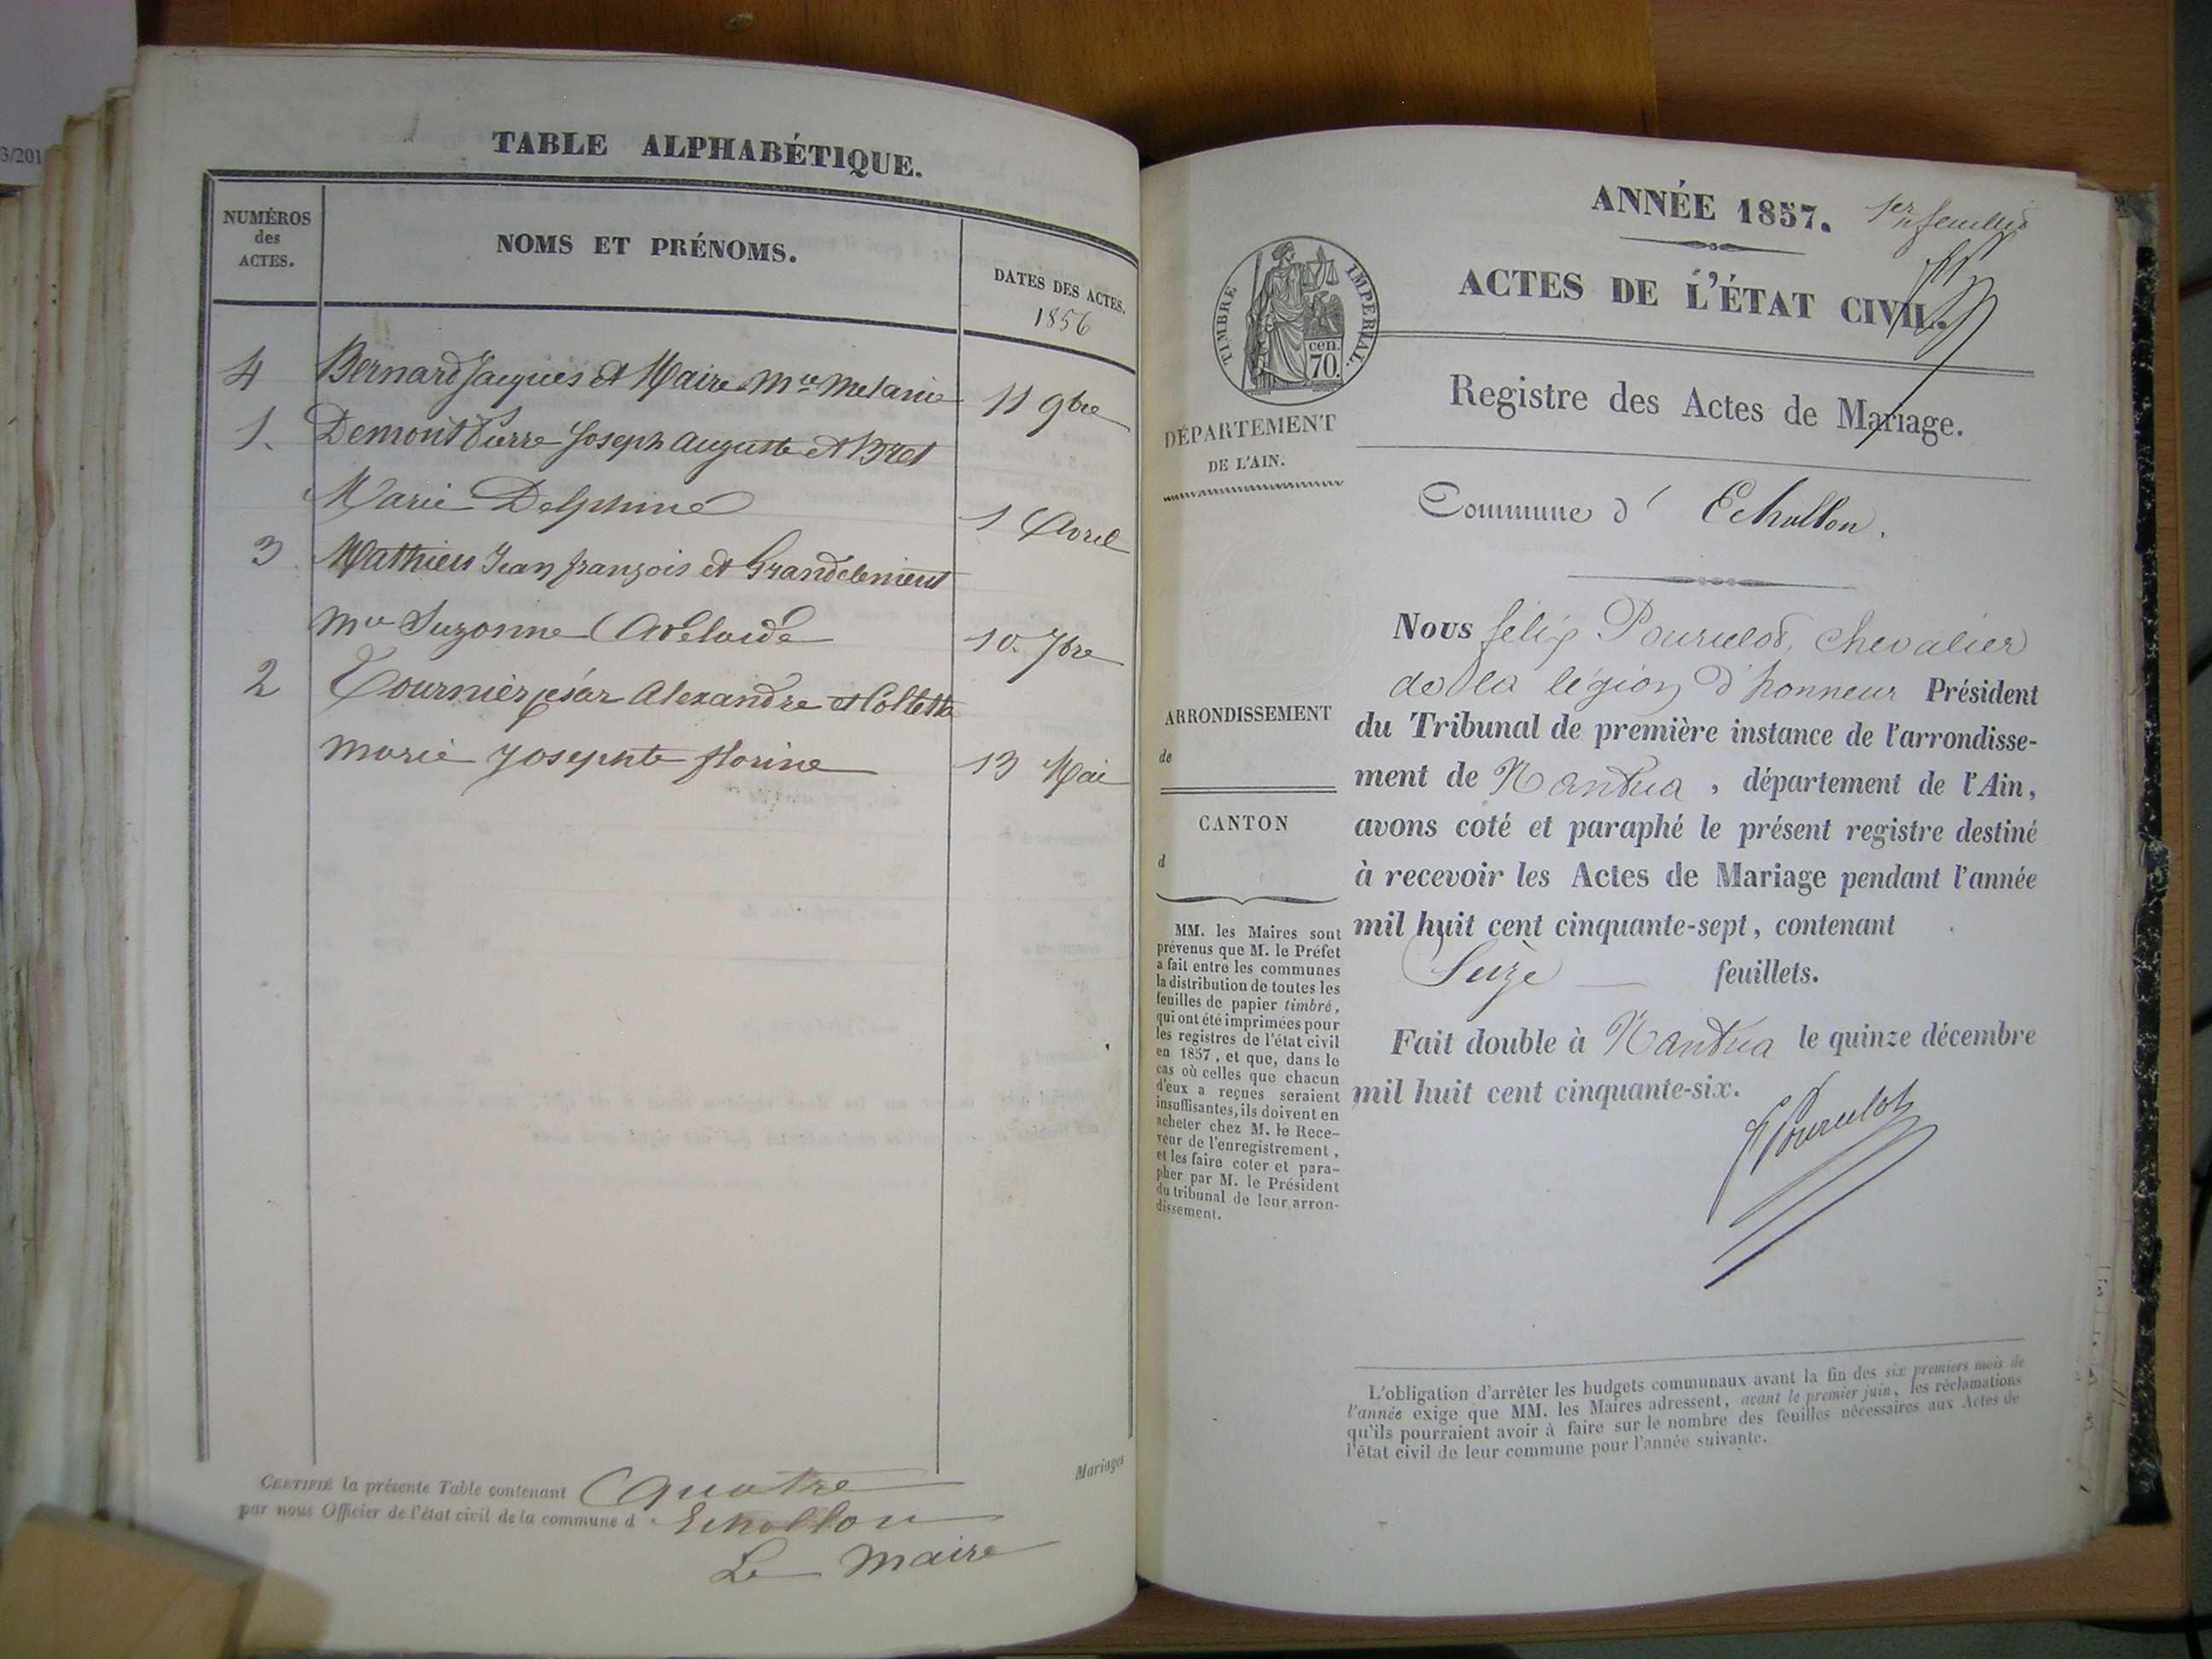 3/201
TABLE ALPHABÉTIQUE.
NUMÉROS
des
ACTES.
NOMS ET PRÉNOMS.
DATES DES ACTES.
1856
4 Bernard Jacques et Maire Mie Melanie 11 9bre
1. Demont Pierre Joseph Auguste et Bret
Marie Delphine 1 Avril
3 Mathieu Jean françois et Grandclement
Mie Suzanne Adelaide 10. 7bre
2 Tournier César Alexandre et Collette
Marie Josephte florine 13 Mai
CERTIFIÉ la présente Table contenant Quatre
par nous Officier de l'état civil de la commune d' Echallon
Le Maire
Mariages
ANNÉE 1857.
1er feuillet
ACTES DE L'ÉTAT CIVIL.
TIMBRE IMPERIAL.
cen.
70.
Registre des Actes de Mariage.
DÉPARTEMENT
DE L'AIN.
Commune d' Echallon.
Nous félix Pourcelot, chevalier
de la légion d'honneur Président
du Tribunal de première instance de l'arrondisse-
ment de Nantua, département de l'Ain,
avons coté et paraphé le présent registre destiné
à recevoir les Actes de Mariage pendant l'année
mil huit cent cinquante-sept, contenant
Seize feuillets.
Fait double à Nantua le quinze décembre
mil huit cent cinquante-six.
Pourcelot
ARRONDISSEMENT
de
CANTON
d
MM. les Maires sont
prévenus que M. le Préfet
a fait entre les communes
la distribution de toutes les
feuilles de papier timbré,
qui ont été imprimées pour
les registres de l'état civil
en 1857, et que, dans le
cas où celles que chacun
d'eux a reçues seraient
insuffisantes, ils doivent en
acheter chez M. le Rece-
veur de l'enregistrement,
et les faire coter et para-
pher par M. le Président
du tribunal de leur arron-
dissement.
L'obligation d'arrêter les budgets communaux avant la fin des six premiers mois de
l'année exige que MM. les Maires adressent, avant le premier juin, les réclamations
qu'ils pourraient avoir à faire sur le nombre des feuilles nécessaires aux Actes de
l'état civil de leur commune pour l'année suivante.